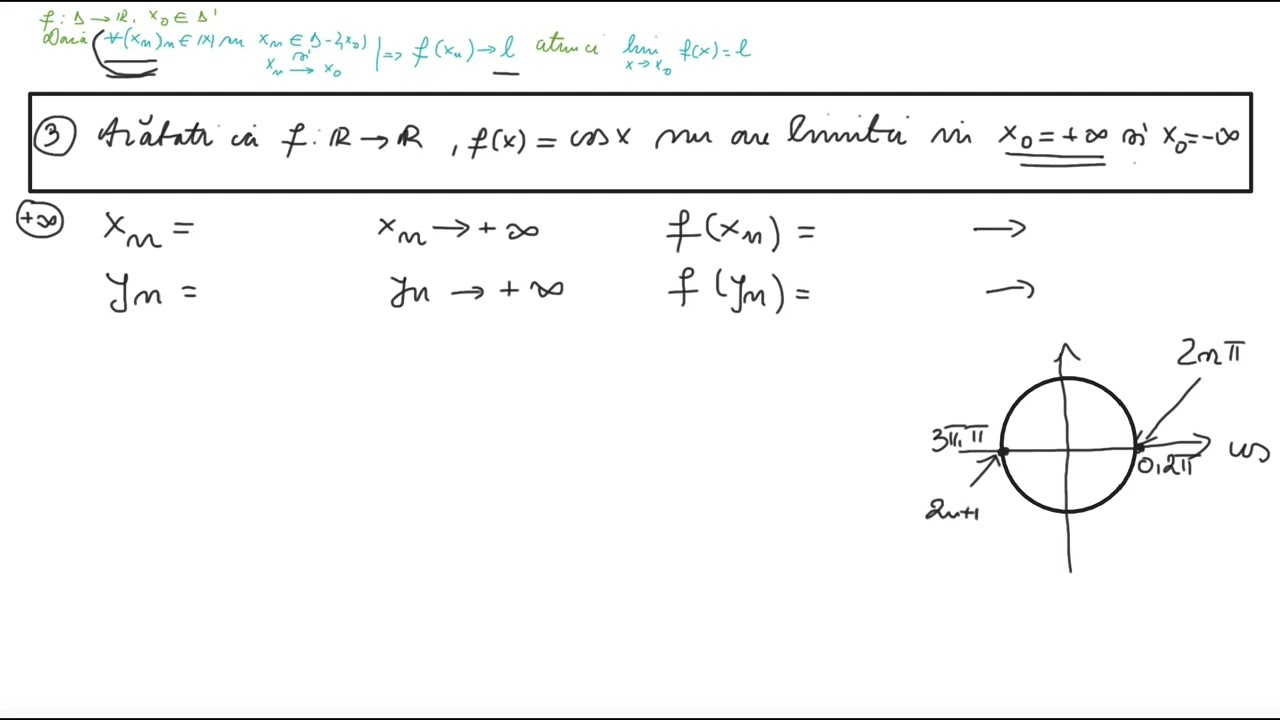 f : D → ℝ, x₀ ∈ D'
Dacă ∀(xₙ)ₙ∈ℕ xₙ ∈ D-{x₀} | => f(xₙ) → l atunci lim f(x) = l
și x→x₀
xₙ → x₀
③ Arătați că f : ℝ → ℝ , f(x) = cos x nu are limită în x₀ = +∞ și x₀ = -∞
+∞ xₙ = xₙ → +∞ f(xₙ) = →
yₙ = yₙ → +∞ f(yₙ) = →
2nπ
3π, π
0, 2π cos
2n+1